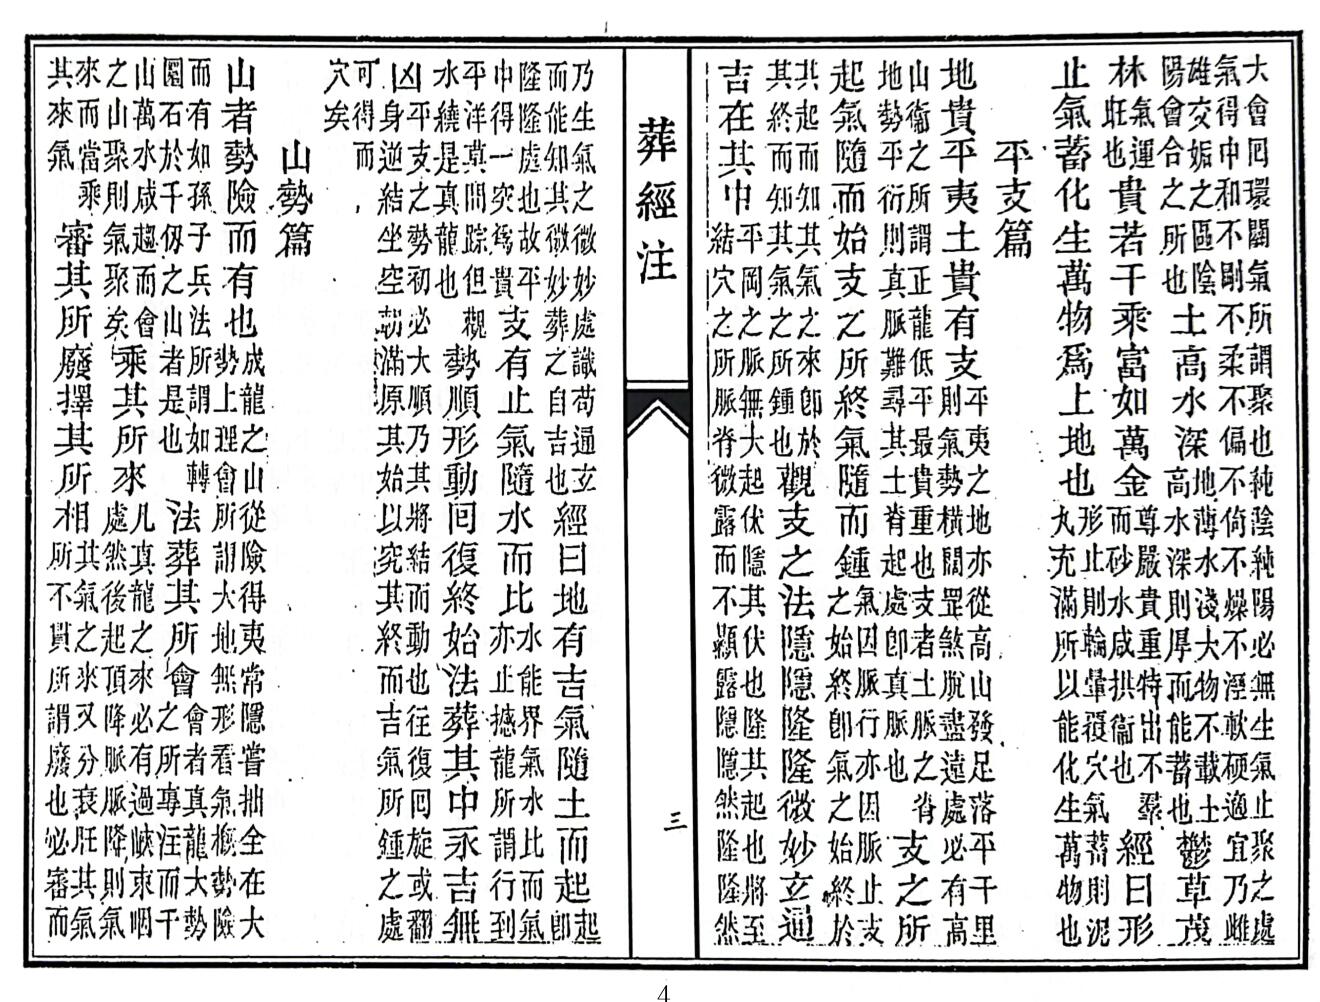 大會囘環關氣所謂聚也純陰純陽必無生氣止聚之處
氣得中和不剛不柔不偏不倚不燥不溼軟硬適宜乃雌
雄交姤之區陰陽會合之所也土高水深地薄水淺大物不載土高水深則厚而能蓄也鬱草茂
林氣運旺也貴若千乘富如萬金尊嚴貴重特出不羣而砂水咸拱衞也經曰形
止氣蓄化生萬物爲上地也形止則輪暈覆穴氣蓄則泥丸充滿所以能化生萬物也
平支篇
地貴平夷土貴有支平夷之地亦從高山發足落平千里則氣勢橫闊罡煞脫盡遠處必有高
山衞之所謂正龍低平最貴重也支者土脈之脊地勢平衍則真脈難尋其土脊起處卽真脈也支之所
起氣隨而始支之所終氣隨而鍾氣因脈行亦因脈止支之始終卽氣之始終於
其起而知其氣之來卽於其終而知其氣之所鍾也觀支之法隱隱隆隆微妙玄通
吉在其中平岡之脈無大起伏隱其伏也隆其起也將至結穴之所脈脊微露而不顯露隱隱然隆隆然
葬經注
三
乃生氣之微妙處識苟通玄而能知其微妙葬之自吉也經曰地有吉氣隨土而起起卽
隆隆處也故平中得一突爲貴支有止氣隨水而比水能界氣水比而氣亦止撼龍所謂行到
平洋莫問踪但觀水繞是真龍也勢順形動囘復終始法葬其中永吉無
凶平支之勢初必大順乃其將結而動也往復囘旋或翻身逆結坐空朝滿原其始以究其終而吉氣所鍾之處
可得而穴矣
山勢篇
山者勢險而有也成龍之山從險得夷常隱嘗拙全在大勢上理會所謂大地無形看氣概勢險
而有如孫子兵法所謂如轉圜石於千仞之山者是也法葬其所會會者真龍大勢之所專注而千
山萬水咸趨而會之山聚則氣聚矣乘其所來凡真龍之來必有過峽束咽處然後起頂降脈脈降則氣
來而當乘其來氣審其所廢擇其所相其氣之來又分衰旺其氣所不貫所謂廢也必審而
4